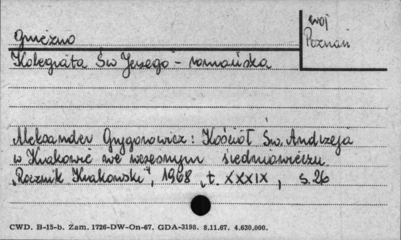 Gniezno
woj
Poznań
Kolegiata Św Jerzego - romańska
Aleksander Grygorowicz: Kościół Św. Andrzeja
w Krakowie we wczesnym średniowieczu.
"Rocznik Krakowski", 1968, t. XXXIX, s. 26
CWD. B-15-b. Zam. 1726-DW-On-67. GDA-3198. 8.11.67. 4.630.000.